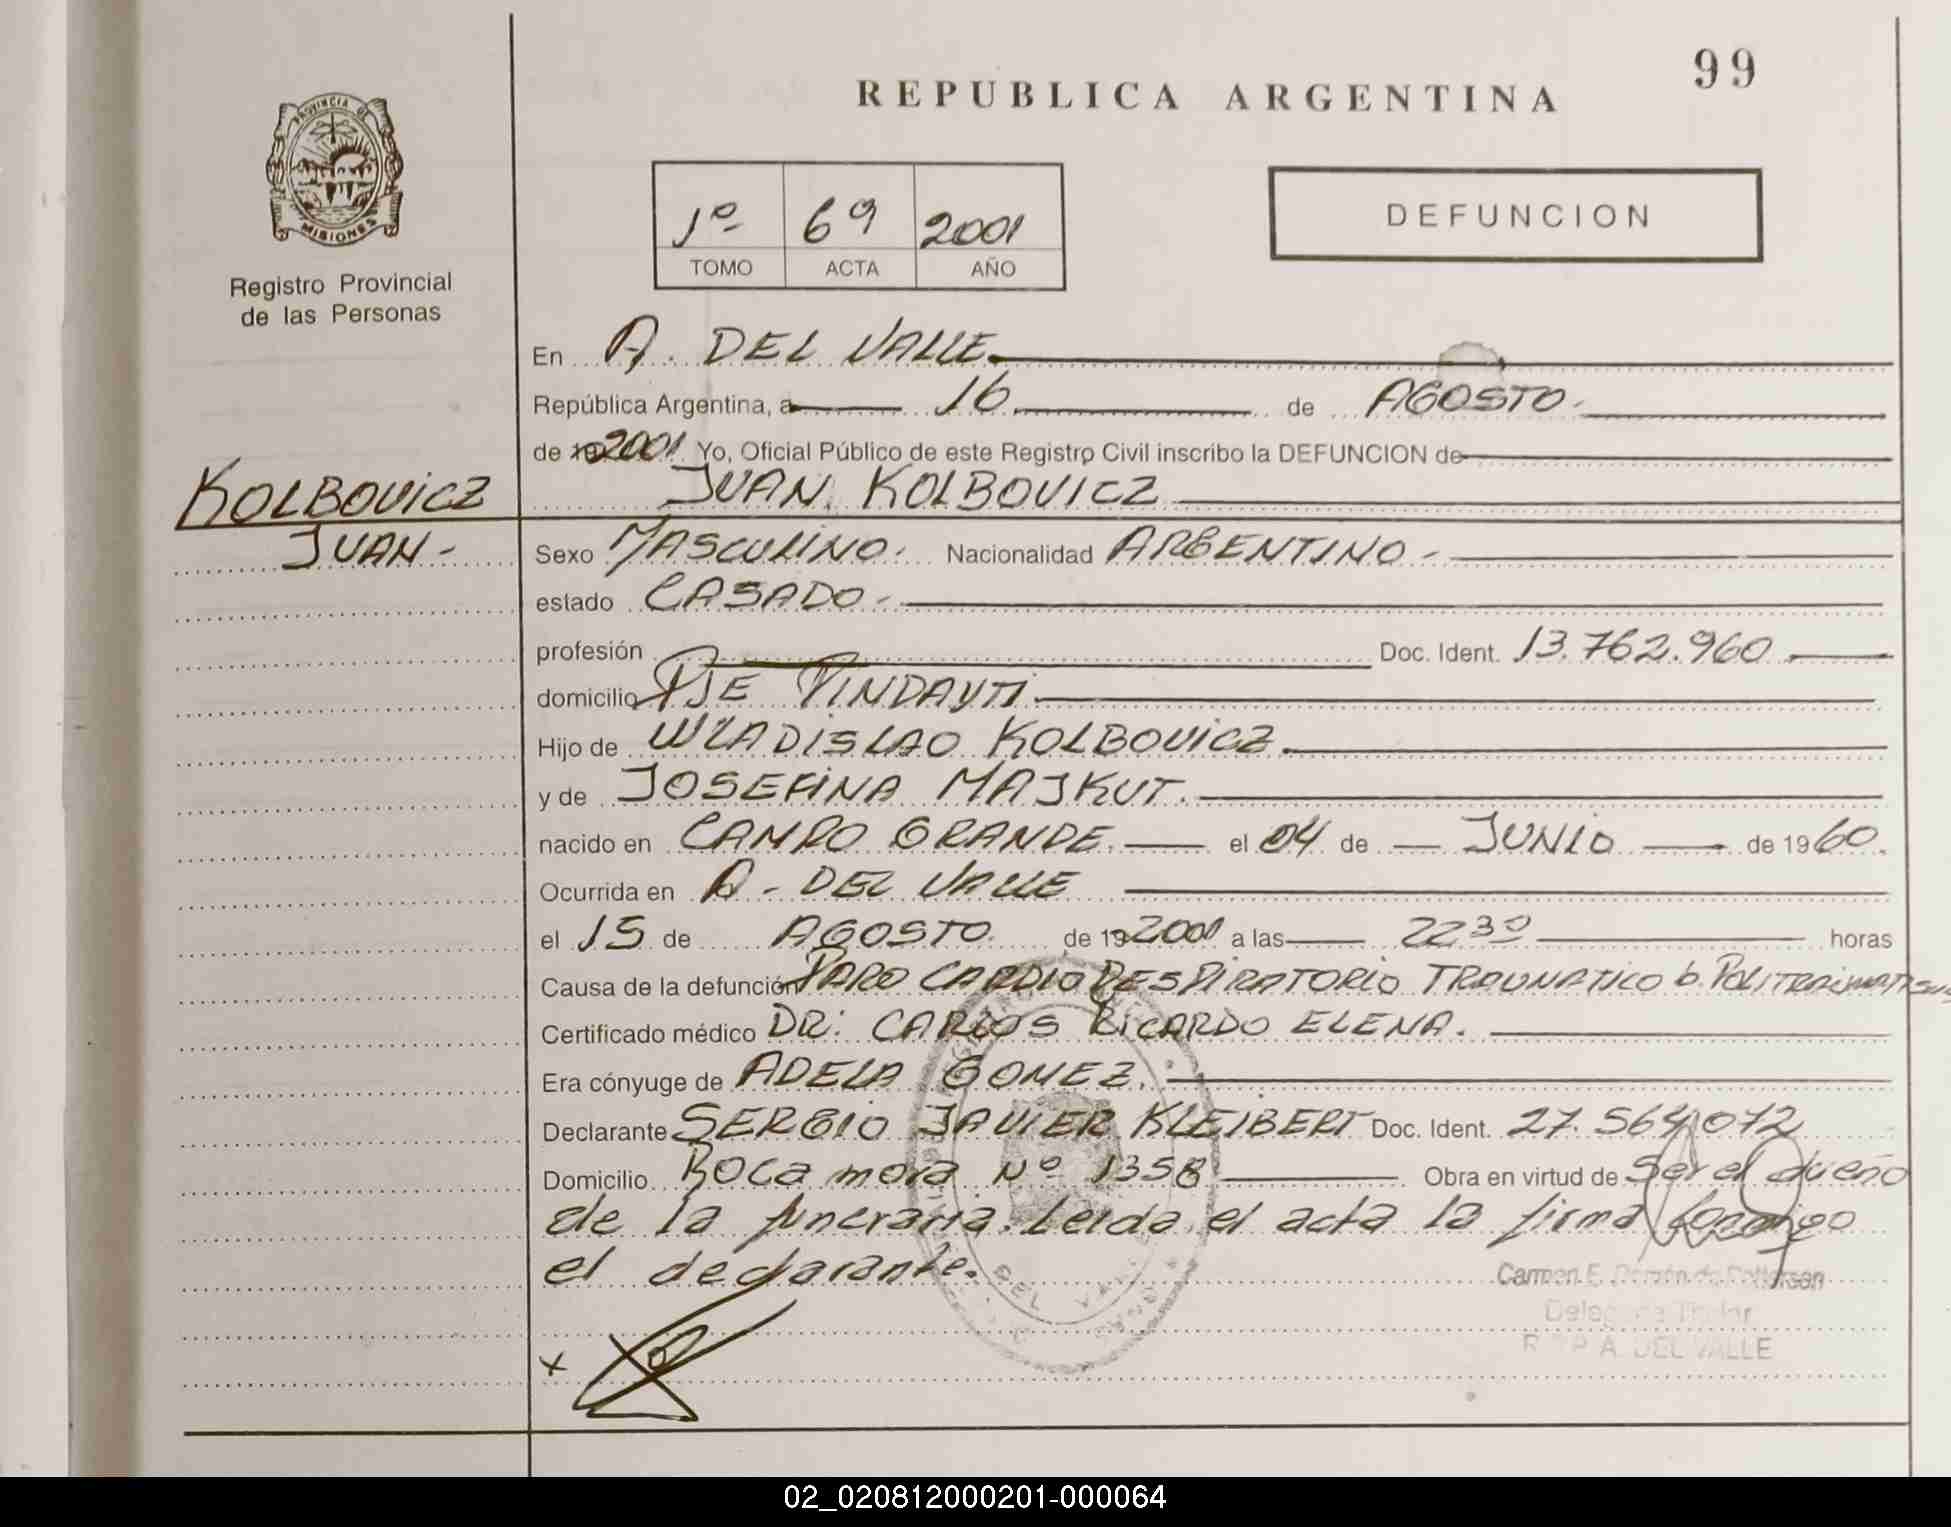 99
REPUBLICA ARGENTINA
PROVINCIA DE
MISIONES
Registro Provincial
de las Personas
1º 69 2001
TOMO ACTA AÑO
DEFUNCION
En A. DEL VALLE
República Argentina, a 16 de AGOSTO.
de 19 2001 Yo, Oficial Público de este Registro Civil inscribo la DEFUNCION de
JUAN. KOLBOVICZ
KOLBOVICZ
JUAN -
Sexo MASCULINO. Nacionalidad ARGENTINO -
estado CASADO -
profesión Doc. Ident. 13.762.960
domicilio PJE PINDAYTI
Hijo de WLADISLAO KOLBOVICZ
y de JOSEFINA MAJKUT.
nacido en CAMPO GRANDE. el 04 de JUNIO de 1960.
Ocurrida en A - DEL VALLE
el 15 de AGOSTO. de 19 2001 a las 22 30 horas
Causa de la defunción PARO CARDIO RESPIRATORIO TRAUMATICO b. 
Certificado médico DR: CARLOS RICARDO ELENA.
Era cónyuge de ADELA GOMEZ.
Declarante SERGIO JAVIER KLEIBERT Doc. Ident. 27.564.072
Domicilio Roca mora Nº 1358 Obra en virtud de Ser el dueño
de la funeraria. Leida el acta la firma conmigo
el declarante.
DEL VALLE
Carmen E. 
Delegada Titular
A. DEL VALLE
x
02_020812000201-000064